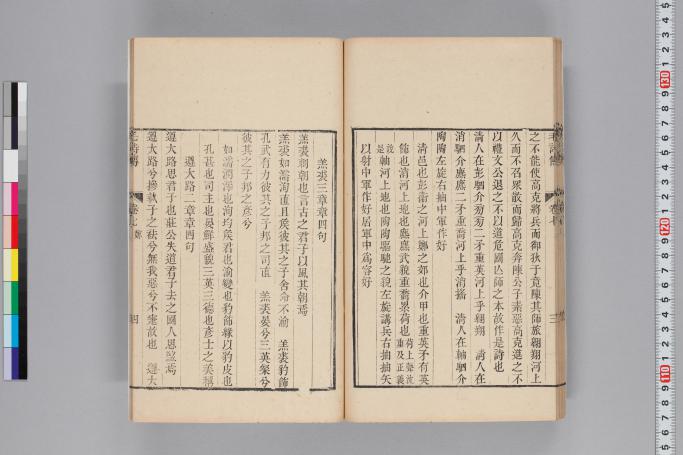 之不能使高克將兵而禦狄于竟陳其師旅翱翔河上
久而不召眾散而歸高克奔陳公子素惡高克進之不
以禮文公退之不以道危國亡師之本故作是詩也
清人在彭駟介旁旁二矛重英河上乎翱翔 清人在
消駟介麃麃二矛重喬河上乎消搖 清人在軸駟介
陶陶左旋右抽中軍作好
清邑也彭衞之河上鄭之郊也介甲也重英矛有英
飾也清河上地也麃麃武貌重喬累荷也
軸河上地也陶陶驅馳之貌左旋講兵右抽抽矢
以射中軍作好居軍中爲容好
三
羔裘三章章四句
羔裘刺朝也言古之君子以風其朝焉
羔裘如濡洵直且侯彼其之子舍命不渝 羔裘豹飾
孔武有力彼其之子邦之司直 羔裘晏兮三英粲兮
彼其之子邦之彥兮
如濡潤澤也洵均侯君也渝變也豹飾緣以豹皮也
孔甚也司主也晏鮮盛貌三英三德也彥士之美稱
遵大路二章章四句
遵大路思君子也莊公失道君子去之國人思望焉
遵大路兮摻執子之袪兮無我惡兮不寁故也 遵大
毛詩傳
四